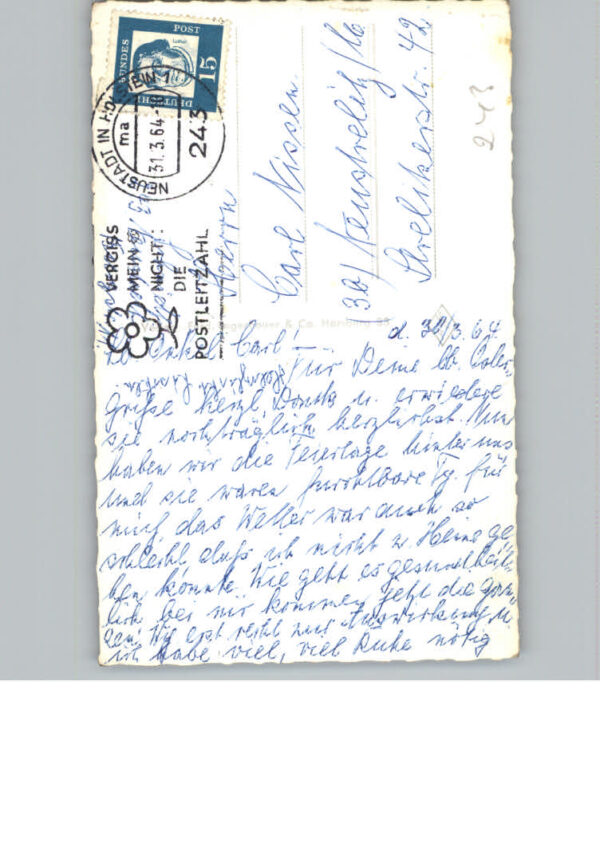 DEUTSCHE BUNDESPOST
15
NEUSTADT IN HOLSTEIN 1
ma
31.3.64
243
VERGISS
MEIN
NICHT:
DIE
POSTLEITZAHL
Herrn
Carl Nissen
Strelitzerstr. 42
243
& Co. Hamburg
d. 30/3.64
Lb. Onkel Carl! —
Für Deine lb. Oster
Grüße herzl. Dank u. erwiedere
sie nachträglich herzlichst. Nun
haben wir die Feiertage hinter uns
und sie waren furchtbare Tg. für
mich, das Wetter war auch so
schlecht, daß ich nicht z. Heine ge
hen konnte. Wie geht es gesundheit
lich bei mir kommen jetzt die
erst recht zur Auswirkung u.
ich habe viel, viel Ruhe nötig